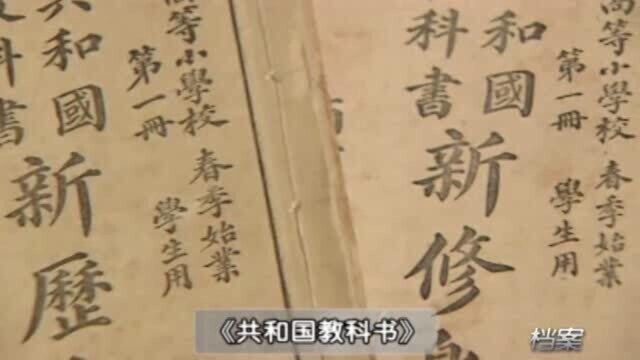 高等小學校
春季始業
第一冊
學生用
共和國
教科書
新修
高等小學校
春季始業
第一冊
學生用
共和國
教科書
新歷
《共和国教科书》
档案